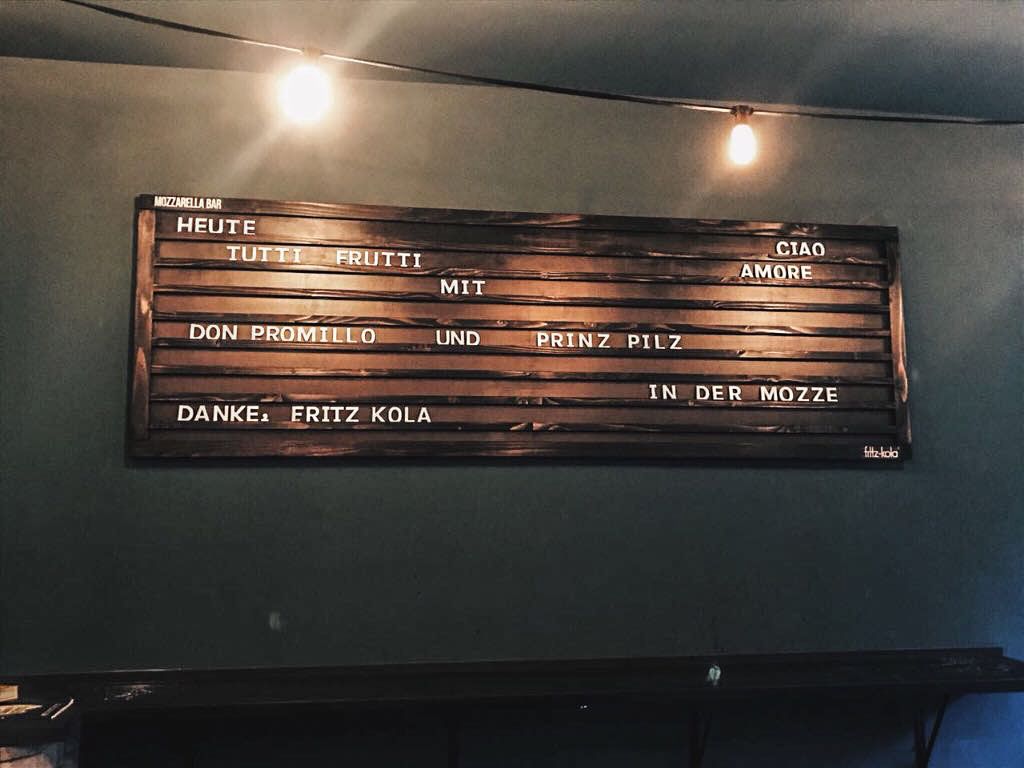 MOZZARELLA BAR
HEUTE
CIAO
TUTTI FRUTTI
AMORE
MIT
DON PROMILLO UND PRINZ PILZ
IN DER MOZZE
DANKE, FRITZ KOLA
fritz-kola